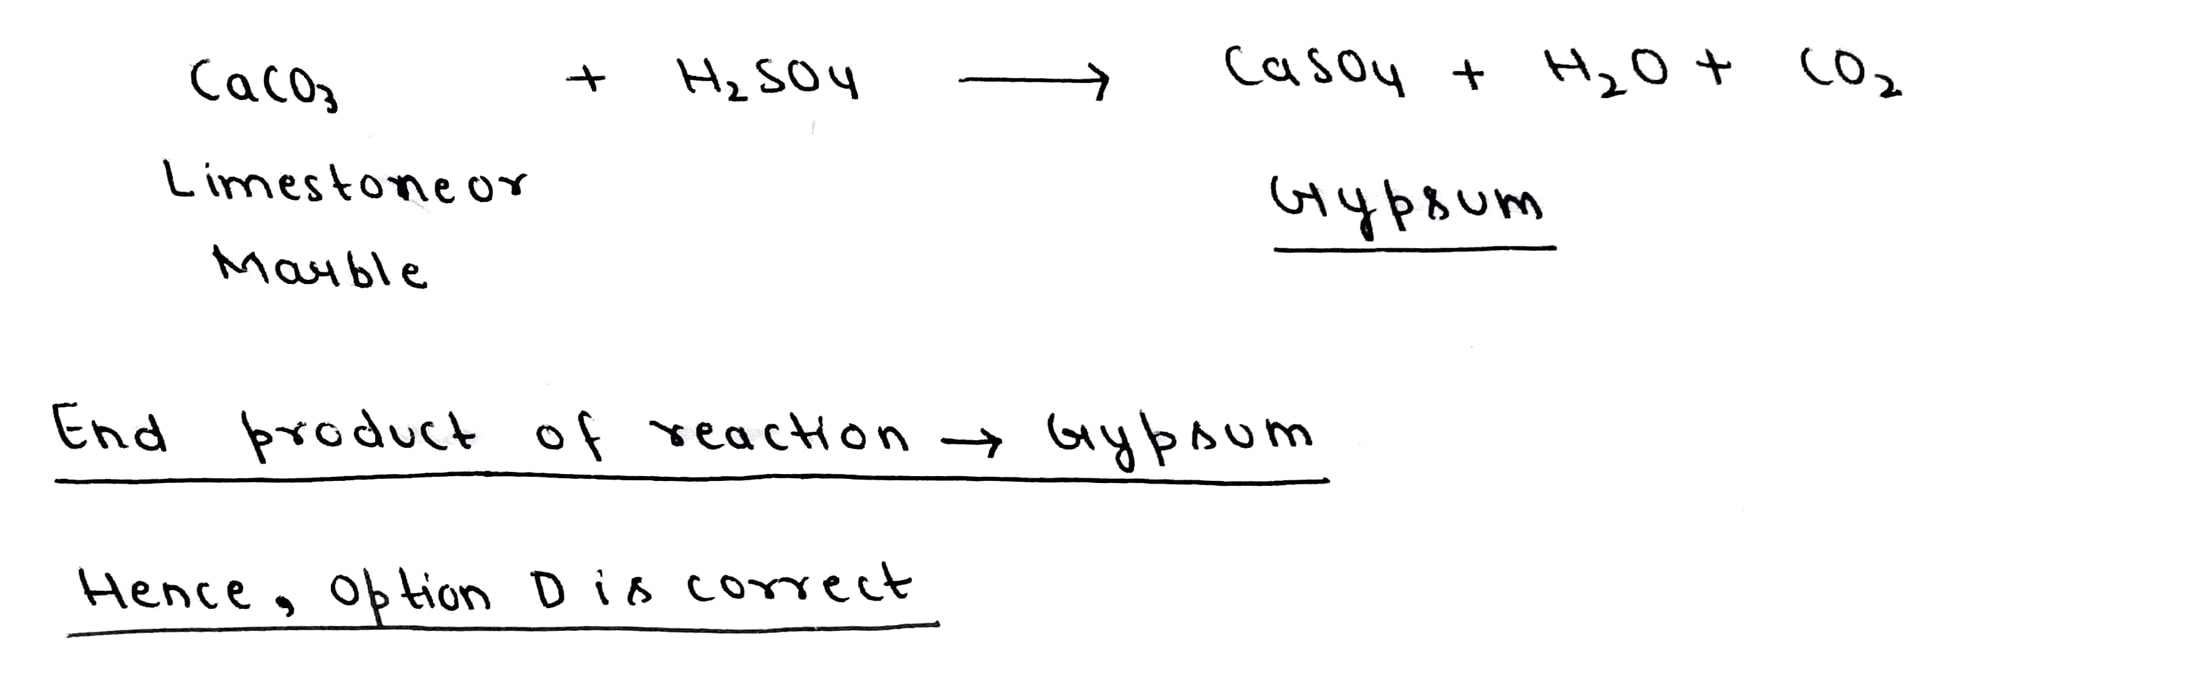 CaCO₃ + H₂SO₄ ⟶ CaSO₄ + H₂O + CO₂
Limestone or Gypsum
Marble
End product of reaction → Gypsum
Hence, Option D is correct